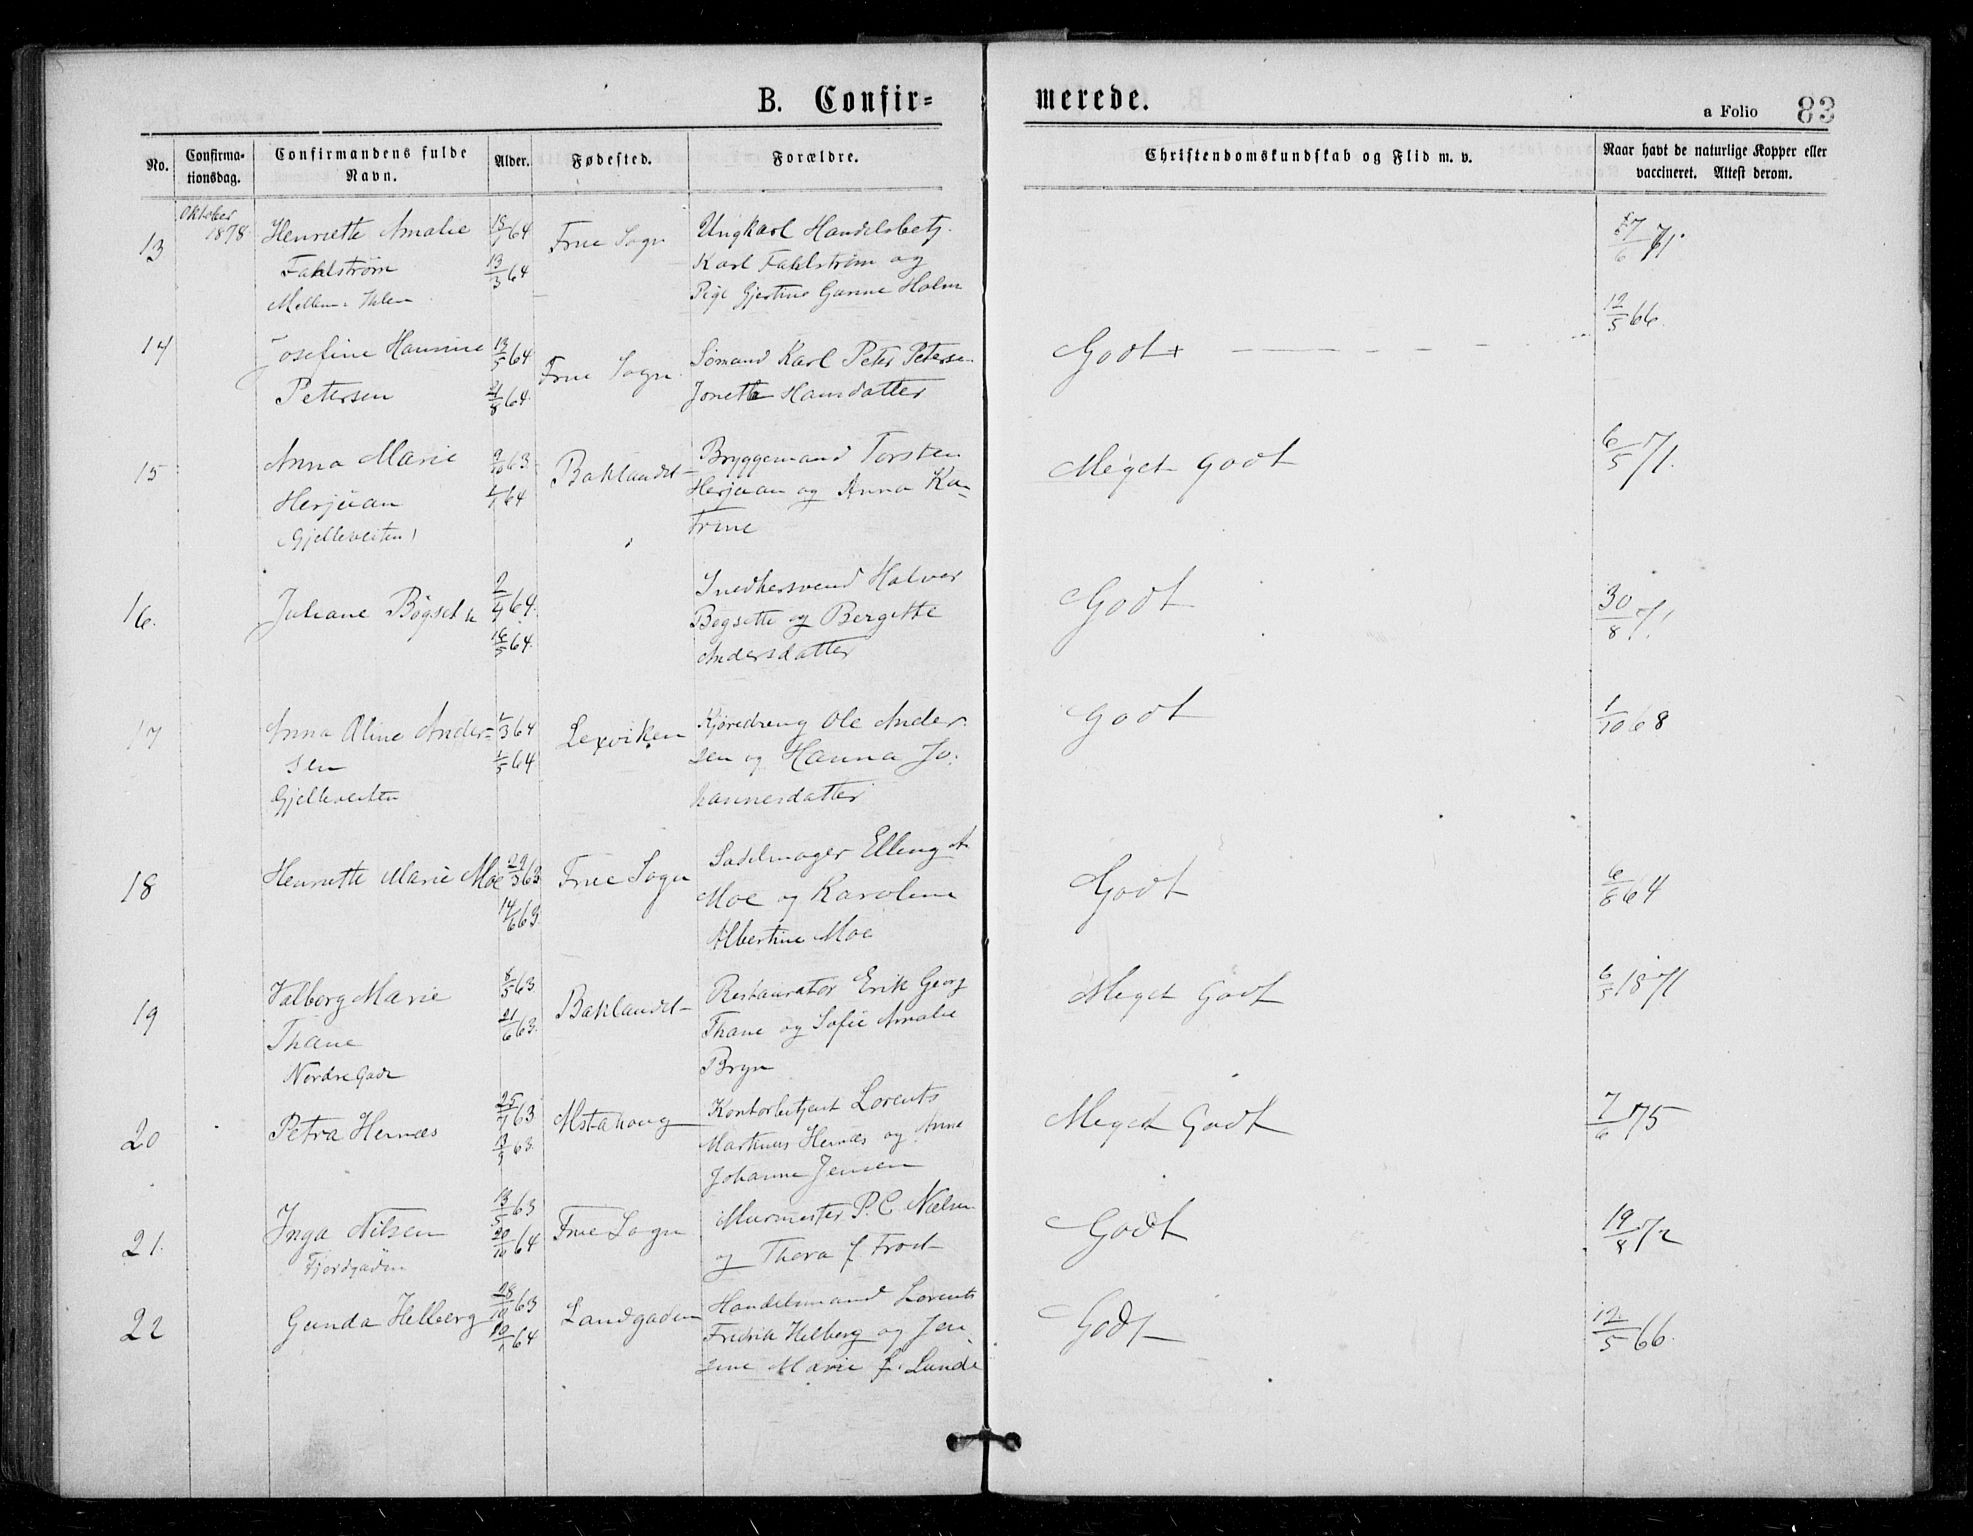 B. Confir=
merede.
a Folio 83
No.
Confirma-
tionsdag.
Confirmandens fulde
Navn.
Alder.
Fødested.
Forældre.
Christendomskundskab og Flid m. v.
Naar havt de naturlige Kopper eller
vaccineret. Attest derom.
Oktober
1878
13
Henriette Amalie
Fahlstrøm
13/3 64
Frue Sogn
Ungkarl Handelsbetj.
Karl Fahlstrøm og
Pige Gjertine Holm
14
Josefine Hansine
Petersen
13/5 64
21/8 64
Frue Sogn
Sømand Karl Peter Petersen
Jonette Hansdatter
Godt+
12/5 66
15
Anna Marie
Herjuan
Gjelleveiten
9/10 63
1/1 64
Baklandet
Bryggemand Torsten
Herjuan og Anna Ka-
trine
Meget godt
6/5 71.
16.
Juliane Bøgseth
2/4 64.
16/5 64.
Snedkersvend Halvor
Bøgsette og Bergitte
Andersdatter
Godt
30/8 71.
17
Anna Oline Ander=
sen
Gjelleveiten
1/3 64
1/5 64
Lexviken
Kjøredreng Ole Ander
sen og Hanna Jo:
hannesdatter
Godt
1/10 68
18
Henriette Marie Moe
29/3 63
14/6 63.
Frue Sogn
Sadelmager Elling A
Moe og Karoline
Albertine Moe
Godt
6/8 64
19
Valborg Marie
Thane
Nordre Gade
8/5 63
21/6 63.
Baklandet
Restauratør Erik Georg
Thane og Sofie Amalie
Bryn
Meget Godt
6/5 1871
20
Petra Hernæs
25/7 63
13/9 63.
Alstahoug
Kontorbetjent Lorents
Martinus Hernæs og Anne
Johanne Jensen
Meget Godt
7/6 75
21.
Inga Nilsen
Fjordgaden
13/5 63
20/10 64
Frue Sogn
Murmester P. C. Nielsen
og Thora f Trod
Godt
19/8 72
22
Gunda Helberg
28/10 63
10/1 64
Sandgaden
Handelsmand Lorents
Fredrik Helberg og Jen
sine Marie f. Lunde
Godt
12/5 66.